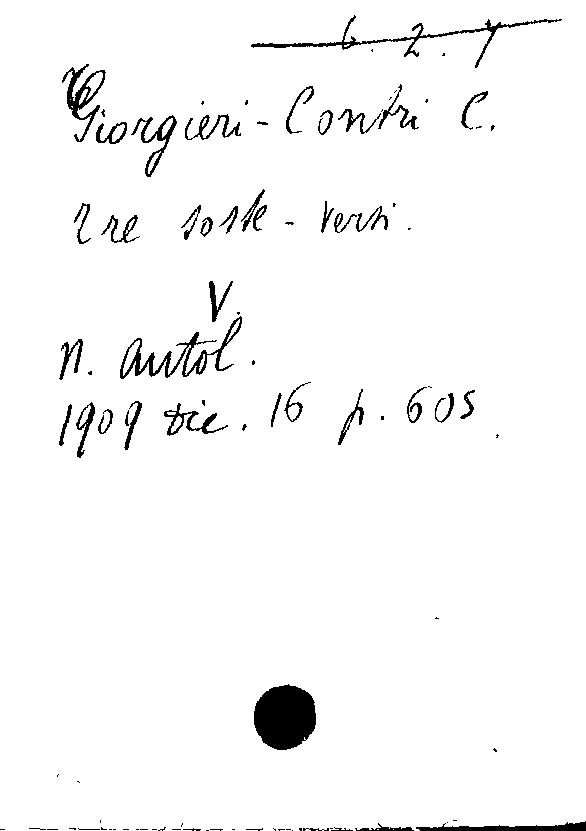 6. 2. 7
Giorgieri-Contri C.
Tre soste - versi.
V.
N. antol.
1909 dic. 16 p. 605